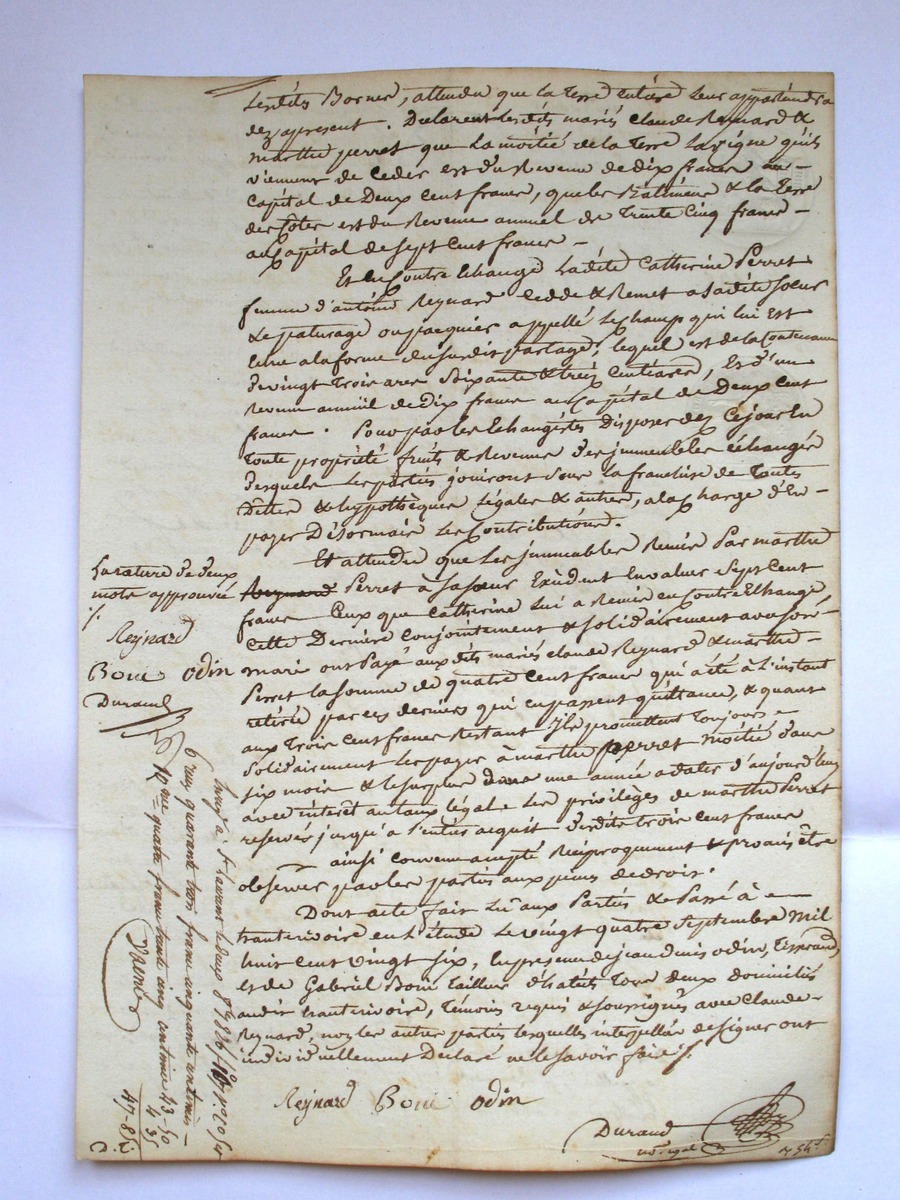 Lesdits Bornes, attendu que la Terre entière leur appartiendra
dez apresent. Declarent Lesdits mariés claude Reynard &
marthe perret que La moitié de la Terre La vigne qu'ils
viennent de Ceder est du Revenu de dix francs au
Capital de Deux Cent francs, que les Bâtimens & la Terre
des Côtes est du Revenu annuel de Trente Cinq francs
au Capital de Sept Cent francs
Et en Contre Echange Ladite Catherine Perret
femme d'antoine Reynard Cedde & Remet a Sadite Soeur
Le paturage ou pacquier appellé Le Champ qui lui Est
Echu a la forme du susdit partage, lequel est de la Contenance
de vingt Trois ares Soixante & treize Centiares, Et d'un
Revenu annuel de Dix francs au Capital de Deux Cent
francs. Pour par les Echangistes Disposer dez Cejour En
Toute propriété fruits & Revenus des immeubles échangés
desquels Les parties jouiront sous la franchise de Toutes
Dettes & hypothèques Légales & autres, a la Charge d'En
payer Désormais Les Contributions.
Et attendu que Les immeubles Remis Par marthe
Perret à Sa Soeur Excèdent En valeur Sept Cent
francs Ceux que Catherine Lui a Remis en Contre Echange,
Cette Derniere Conjointement & solidairement avec son
mari ont Payé aux dits mariés claude Reynard & marthe
Perret la Somme de quatre Cent francs qui a été à L'instant
retirée par ces derniers qui en passent quittance, & quant
aux Trois Cent francs Restant Ils promettent Toujours
Solidairement Les payer à marthe perret moitié dans
six mois & le surplus dans une année a dater d'aujourd'huy
avec interêt au taux légal. Les privilèges de marthe Perret
reservés jusqu'a l'entier acquit desdits trois Cent francs
ainsi Convenu accepté Réciproquement & promis être
observer par les parties aux peines de droit.
Dont acte fait Lu aux Parties & Passé à
hauterivoire en L'étude Le vingt quatre Septembre Mil
huit Cent Vingt Six, En presence de jean denis odin, Tisserand,
et de Gabriel Bouí Tailleur d'habits Tous deux domiciliés
audit hauterivoire, Témoins requis & soussignés avec Claude
Reynard, non les autres parties lesquelles interpellées de signer ont
individuellement Déclaré ne le savoir faire
Reynard Bouí odin
Durand
La rature de deux
mots approuvée
Reynard
Bouí odin
Durand
Reçu quarante trois francs cinquante centimes
quatre francs trente cinq centimes
43-50
4 35
47-85